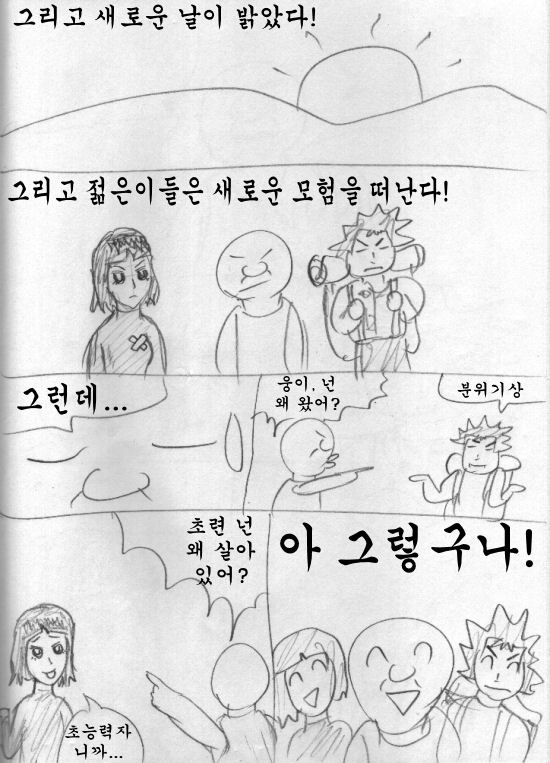 그리고 새로운 날이 밝았다!
그리고 젊은이들은 새로운 모험을 떠난다!
그런데...
웅이, 넌
왜 왔어?
분위기상
초련 넌
왜 살아
있어?
초능력자
니까...
아 그렇구나!